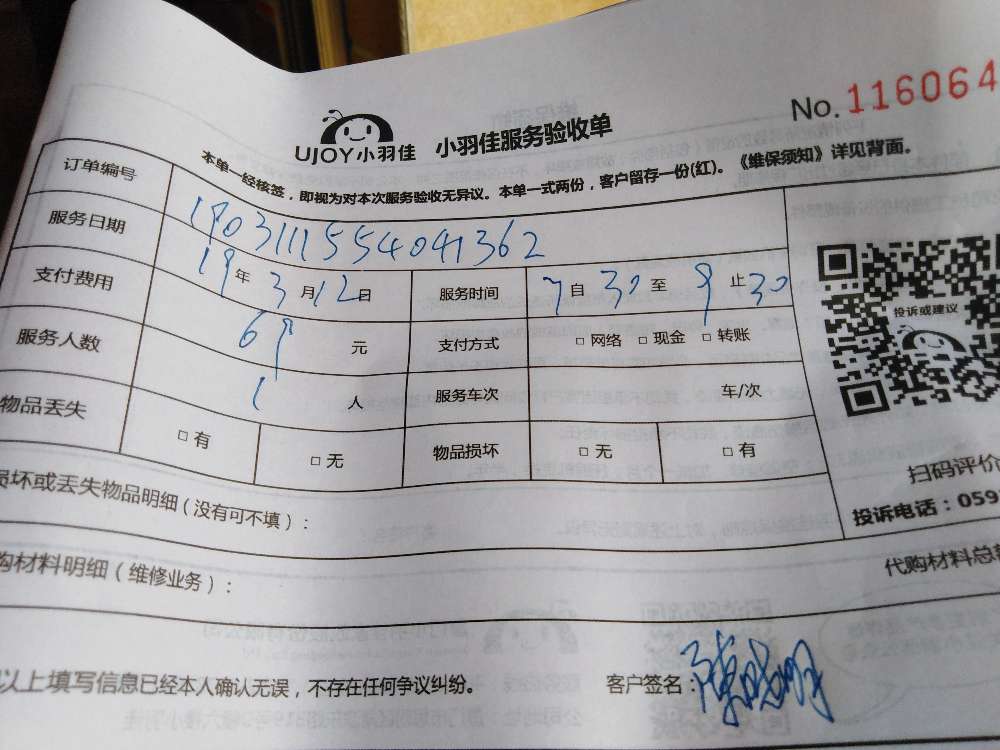 No.116064
UJOY小羽佳 小羽佳服务验收单
本单一经核签，即视为对本次服务验收无异议。本单一式两份，客户留存一份(红)。《维保须知》详见背面。
订单编号 190311155404136 2
服务日期 19年3月12日 服务时间 7自30至9止30
支付费用 69元 支付方式 □网络 □现金 □转账
服务人数 1人 服务车次 车/次
物品丢失 □有 □无 物品损坏 □无 □有
投诉或建议
扫码评价
投诉电话：059
损坏或丢失物品明细（没有可不填）：
购材料明细（维修业务）：
代购材料总
以上填写信息已经本人确认无误，不存在任何争议纠纷。 客户签名：